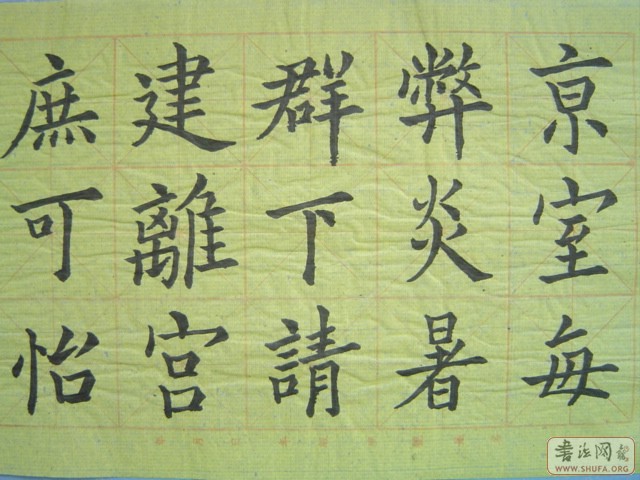 京室每
弊炎暑
群下請
建離宮
庶可怡
书法网
WWW.SHUFA.ORG